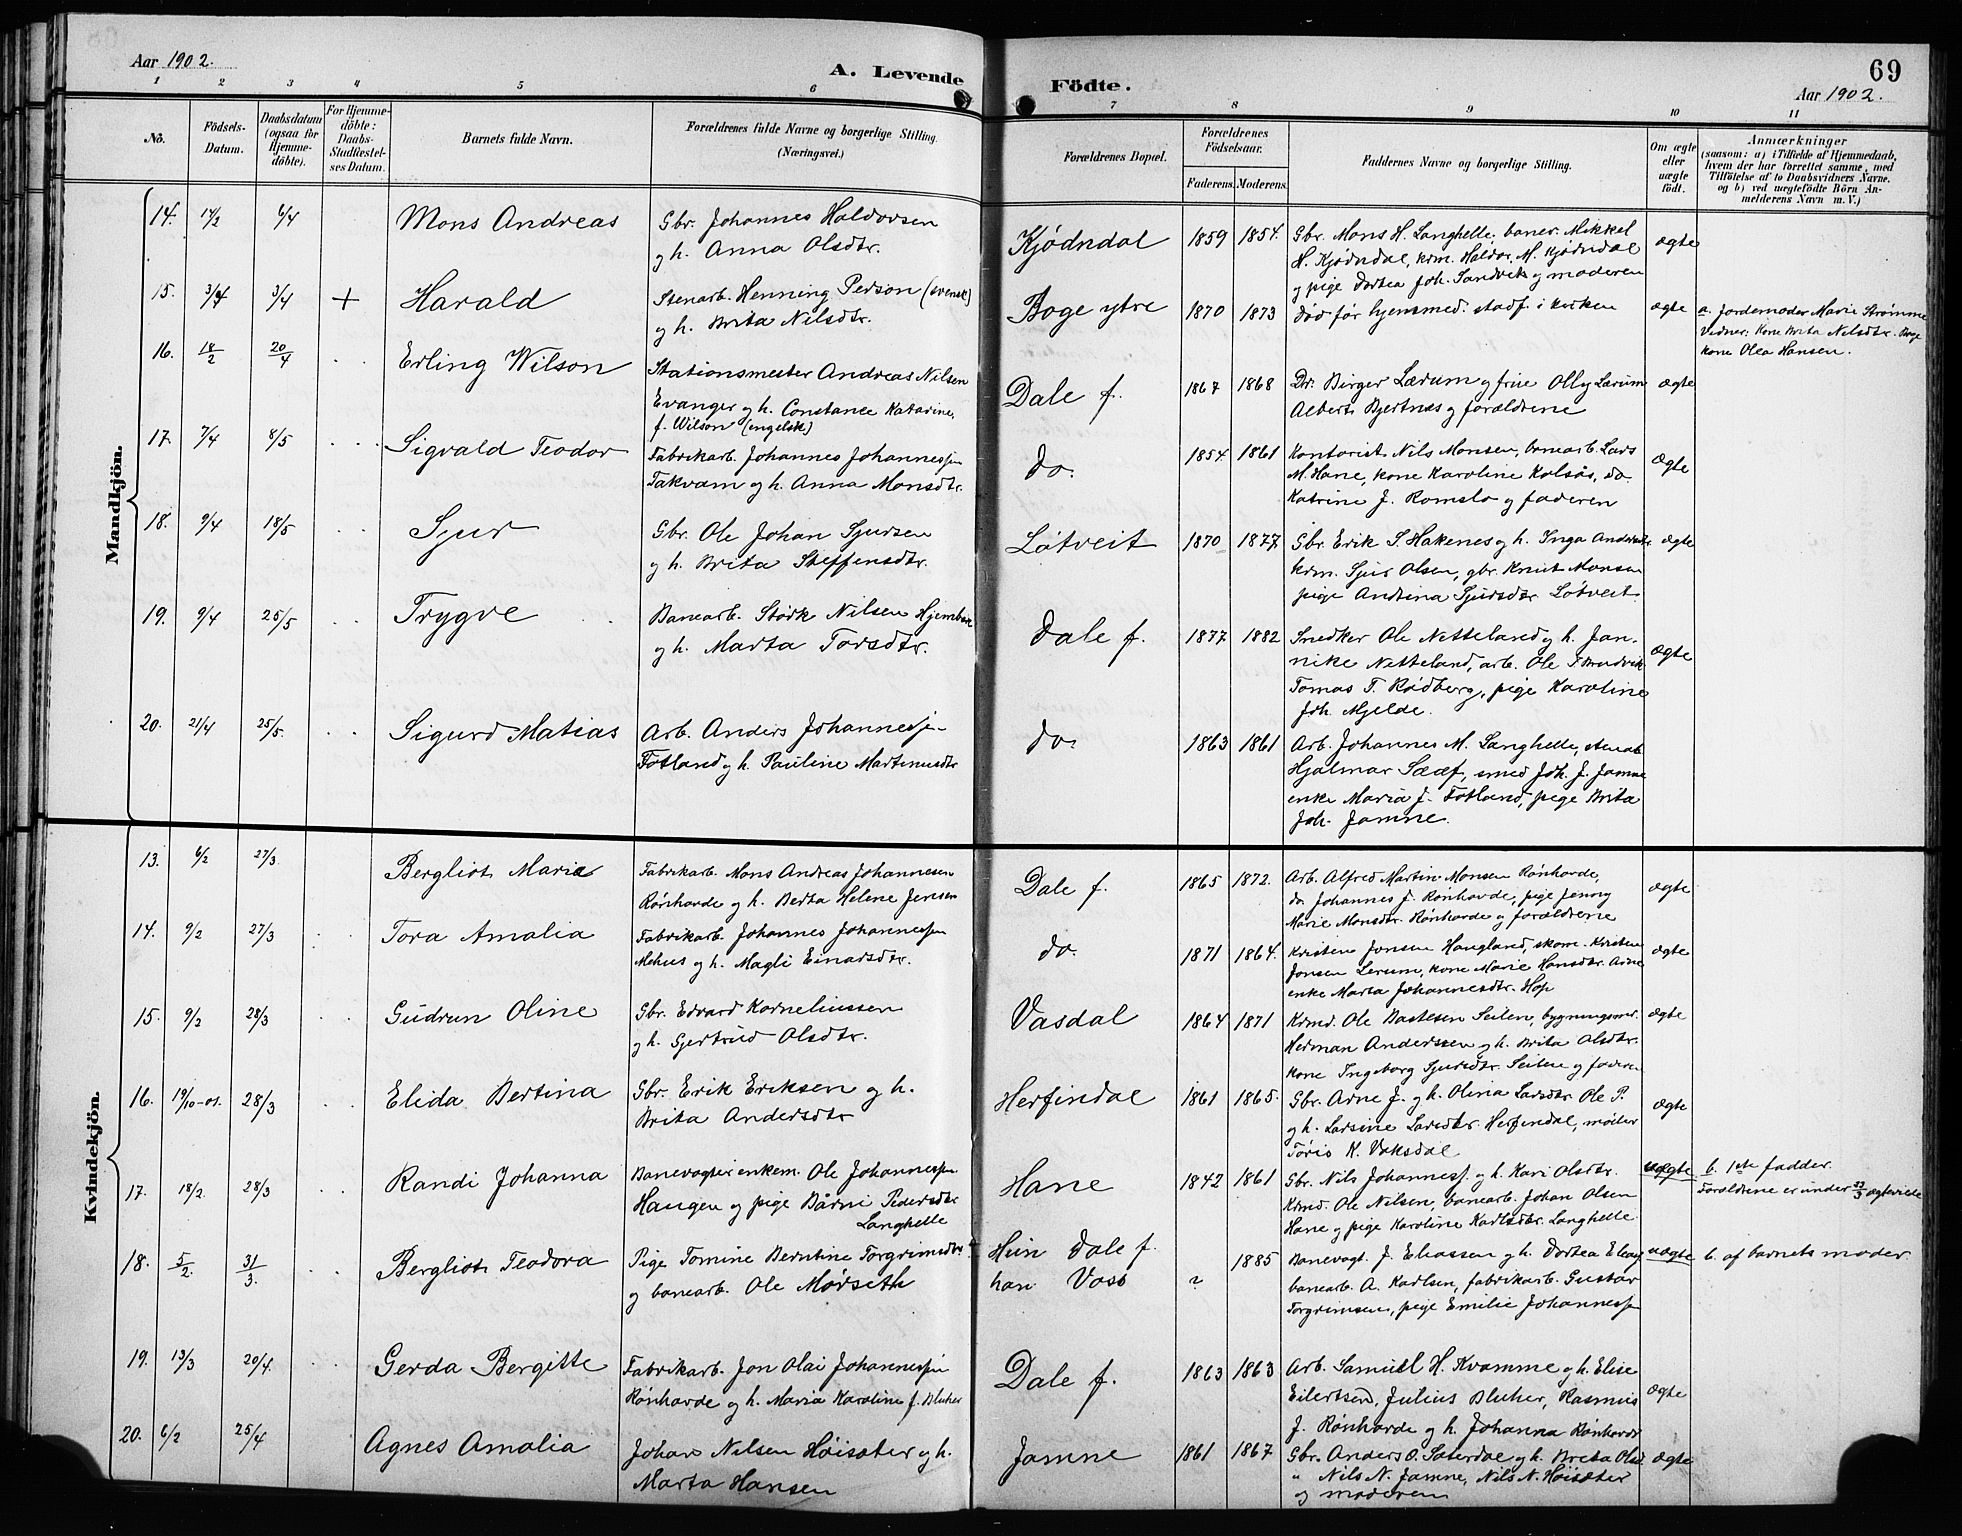 Aar 1902.
A. Levende
Födte.
69
Aar 1902.
1 2 3 4 5 6 7 8 9 10 11
No.
Födsels-
Datum.
Daabsdatum
(ogsaa for
Hjemme-
döbte).
For Hjemme-
döbte:
Daabs-
Stadfæstel-
ses Datum.
Barnets fulde Navn.
Forældrenes fulde Navne og borgerlige Stilling.
(Næringsvei.)
Forældrenes Bopæl.
Forældrenes
Födselsaar.
Faderens. Moderens.
Faddernes Navne og borgerlige Stilling.
Om ægte
eller
uægte
födt.
Anmærkninger
(saasom: a) i Tilfælde af Hjemmedaab,
hvem der har forrettet samme, med
Tilföielse af to Daabsvidners Navne.
og b) ved uægtefödte Börn An-
melderens Navn m. V.)
Mandkjön.
14. 17/2 6/4 Mons Andreas
Gbr. Johannes Haldorsen
og h. Anna Olsdtr.
Kjødndal 1859 1854.
Gbr. Mons H. Langhelle, baner. Mikkel
H. Kjødndal, krm. Haldor M. Kjødndal
og pige Dortea Joh. Sandvik og moderen
ægte
15. 3/4 3/4 + Harald
Stenarb. Henning Person (svensk)
og h. Brita Nilsdtr.
Boge ytre 1870 1873
død før hjemmed. stadf. i kirken
ægte
a. Jordemoder Marie Strømme
Vidner: kone Brita Nilsdtr. Boge
kone Olea Hansen.
16. 18/2 20/4 Erling Wilson
Stationsmester Andreas Nilsen
Evanger og h. Constance Katarine
f. Wilson (engelsk)
Dale f. 1867 1868
Dr. Birger Lærum og frue Olly Lærum
Albert Bjertnæs og forældrene
ægte
17. 7/4 8/5 Sigvald Teodor
Fabrikarb. Johannes Johannessen
Takvam og h. Anna Monsdtr.
do. 1854 1861
Kontorist Nils Monsen, banearb. Lars
M. Hane, kone Karoline Kolsås, do
Katrine J. Romslo og faderen
Ægte
18. 9/4 18/5 Sjur
Gbr. Ole Johan Sjursen
og h. Brita Steffensdtr.
Løtveit 1870 1877
Gbr. Erik S. Hakenes og h. Inga Andersdtr.
krm. Sjur Olsen, gbr. Knut Monsen
pige Andrina Sjursdtr Løtveit
ægte
19. 9/4 25/5 Trygve
Banearb. Størk Nilsen
og h. Marta Torsdtr.
Dale f. 1877 1882
Snedker Ole Netteland og h. Jan-
nike Netteland, arb. Ole T. Brudvik
Tomas T. Rødberg, pige Karoline
Joh. Mjelde.
Ægte
20. 21/4 25/5. Sigurd Matias
Arb. Anders Johannessen
Fotland og h. Pauline Martinusdtr
do. 1863 1861
Arb. Johannes M. Langhelle, stenarb
Hjalmar Sææf, smed Joh. J. Jamne
enke Maria J. Fotland, pige Brita
Joh. Jamne.
Kvindekjön.
13. 6/2 27/3. Bergliot Marie
Fabrikarb. Mons Andreas Johannesen
Rønhovde og h. Berta Helene Jensen
Dale f. 1865 1872.
Arb. Alfred Martin Monsen Rønhovde,
do Johannes J. Rønhovde, pige Jenny
Marie Monsdtr. Rønhovde og forældrene
ægte
14. 9/2 27/3 Tora Amalia
Fabrikarb. Johannes Johannessen
Mehus og h. Magli Einarsdtr.
do. 1871 1864.
Kristen Jonsen Haugland, skom. Kristen
Jonsen Lerum, kone Marie Hansdtr. Arne
enke Marta Johannesdtr. Hop
ægte
15. 9/2 28/3 Gudrun Oline
Gbr. Edvard Korneliussen
og h. Gjertrud Olsdtr.
Vasdal 1864 1871
Krmd. Ole Bastesen Seilen, bygningsmd.
Herman Anderssen og h. Brita Olsdtr.
kone Ingeborg Sjursdtr. Seilen og faderen
ægte
16. 19/10-01. 28/3 Elida Bertina
Gbr. Erik Eriksen og h.
Brita Andersdtr
Herfindal 1861 1865.
Gbr. Arne J. og h. Olina Larsdtr Ole P.
og h. Larsine Larsdtr. Herfindal, møller
Tøris K. Vaksdal
ægte
17. 18/2. 28/3 Randi Johanna
Banevogter enkem. Ole Johannessen
Haugen og pige Bårni Pedersdtr
Langhelle
Hane 1842 1861
Gbr. Nils Johanness. og h. Kari Olsdtr.
Krmd. Ole Nilsen, banearb. Johan Olsen
Hane og pige Karoline Karlsdtr. Langhelle
uægte
b. 1ste fadder.
Forældrene er under 23/3 ægteviede
18. 5/2. 31/3. Bergliot Teodora
Pige Tomine Berntine Torgrimsdtr
og banearb. Ole Mørseth
Hun Dale f.
han Voss ? 1885
Banevogt. J. Eliassen og h. Dortea Elias
banearb. A. Karlsen, fabrikarb. Gustav
Torgrimsen, pige Emilie Johannessen
uægte
b. af barnets moder.
19. 13/3 20/4. Gerda Bergitte
Fabrikarb. Jon Olai Johannessen
Rønhovde og h. Maria Karoline f. Bluher
Dale f. 1863 1863
Arb. Samuel H. Kvamme og h. Elise
Eilertsen, Julius Bluher, Rasmus
J. Rønhovde og h. Johanna Rønhovde
ægte
20. 6/2 25/4 Agnes Amalia
Johan Nilsen Høisæter og h.
Marta Hansen
Jamne 1861 1867
Gbr. Anders O. Sæterdal og h. Brita Olsd
" Nils N. Jamne, Nils N. Høisæter
og moderen
ægte